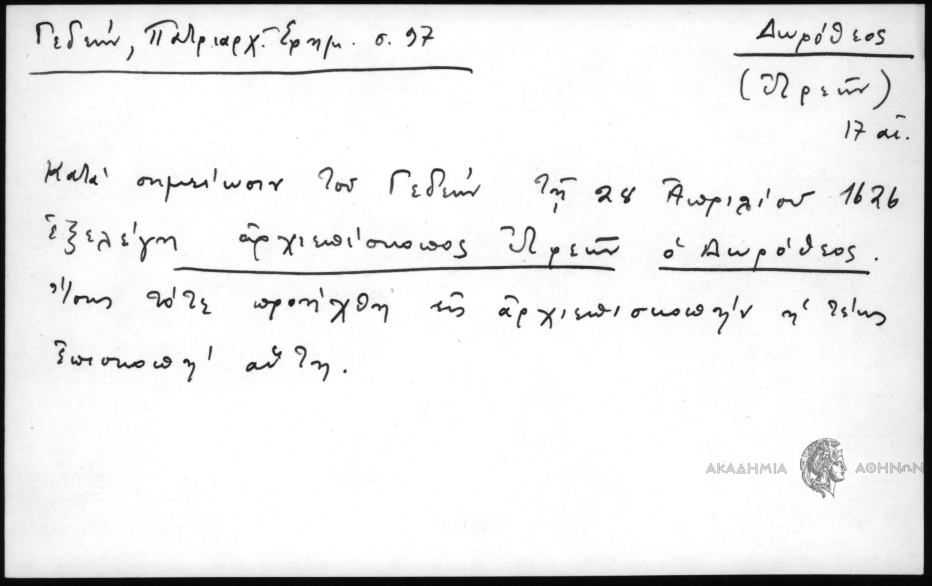 Γεδεών, Πατριαρχ. Ἐφημ. σ. 97
Δωρόθεος
(Ἰτρεῶν)
17 αἰ.
Κατά σημείωσιν τοῦ Γεδεών τῇ 28 Ἀπριλίου 1626
ἐξελέγη ἀρχιεπίσκοπος Ἰτρεῶν ὁ Δωρόθεος.
Ἴσως τότε προήχθη εἰς ἀρχιεπισκοπήν ἡ τέως
ἐπισκοπή αὕτη.
ΑΚΑΔΗΜΙΑ ΑΘΗΝΩΝ